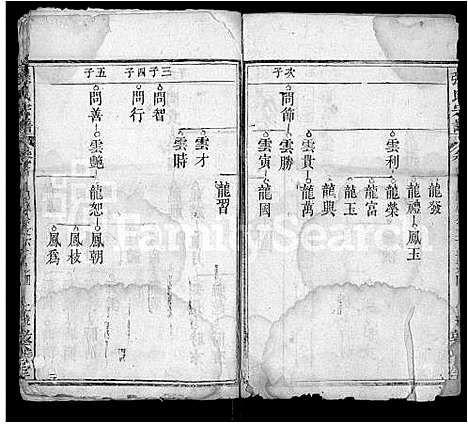 次子
問節
雲利
雲貴
雲勝
雲寅
龍發
龍禮
龍榮
龍富
龍玉
龍興
龍萬
龍國
鳳玉
三子
四子
五子
問智
問行
問善
雲才
雲時
雲艷
龍習
龍恕
鳳朝
鳳枝
鳳為
FamilySearch